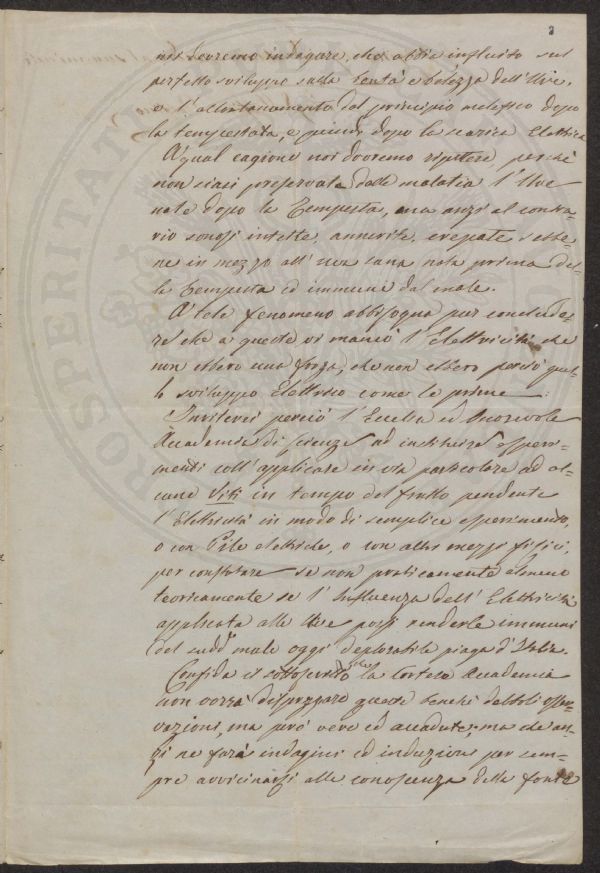 3
noi dovremo indagare, che abbia influito sul
perfetto sviluppo sulla bontà e bellezza dell'Uve,
e l'allontanamento del principio malefico dopo
la tempestata, e quindi dopo la scarica Elettrica
A qual cagione noi dovremo ripetere, perchè
non siasi preservata dalla malatia l'Uve
nate dopo la Tempesta, ma anzi al contra-
rio sonosi infette, annerite, crepate sebbe-
ne in mezzo all'uva sana nata prima del-
la Tempesta ed immune dal male.
A tale fenomeno abbisogna pur conclude-
re che a queste vi mancò l'Elettricità che
non ebbero una forza, che non ebbero perciò quel-
lo sviluppo Elettrico come le prime:
Inviterei perciò l'Eccelsa ed Onorevole
Accademia di Scienze ad instituire esperi-
menti coll'applicare in via particolare ad al-
cune Viti in tempo del frutto pendente
l'Elettricità in modo di semplice esperimento,
o con Pile elettriche, o con altri mezzi fisici,
per constatare se non praticamente almeno
teoricamente se l'Influenza dell'Elettricità
applicata alle Uve possi renderle immuni
del sudd° male oggi deplorabile piaga d'Italia.
Confida il sottoscritto che la Cortese Accademia
non vorrà disprezzare queste benchè deboli osser-
vazioni, ma però vere ed accadute; ma che an-
zi ne farà indagini ed induzioni per sem-
pre avvicinarsi alla conoscenza della fonte
ROSPERITAT